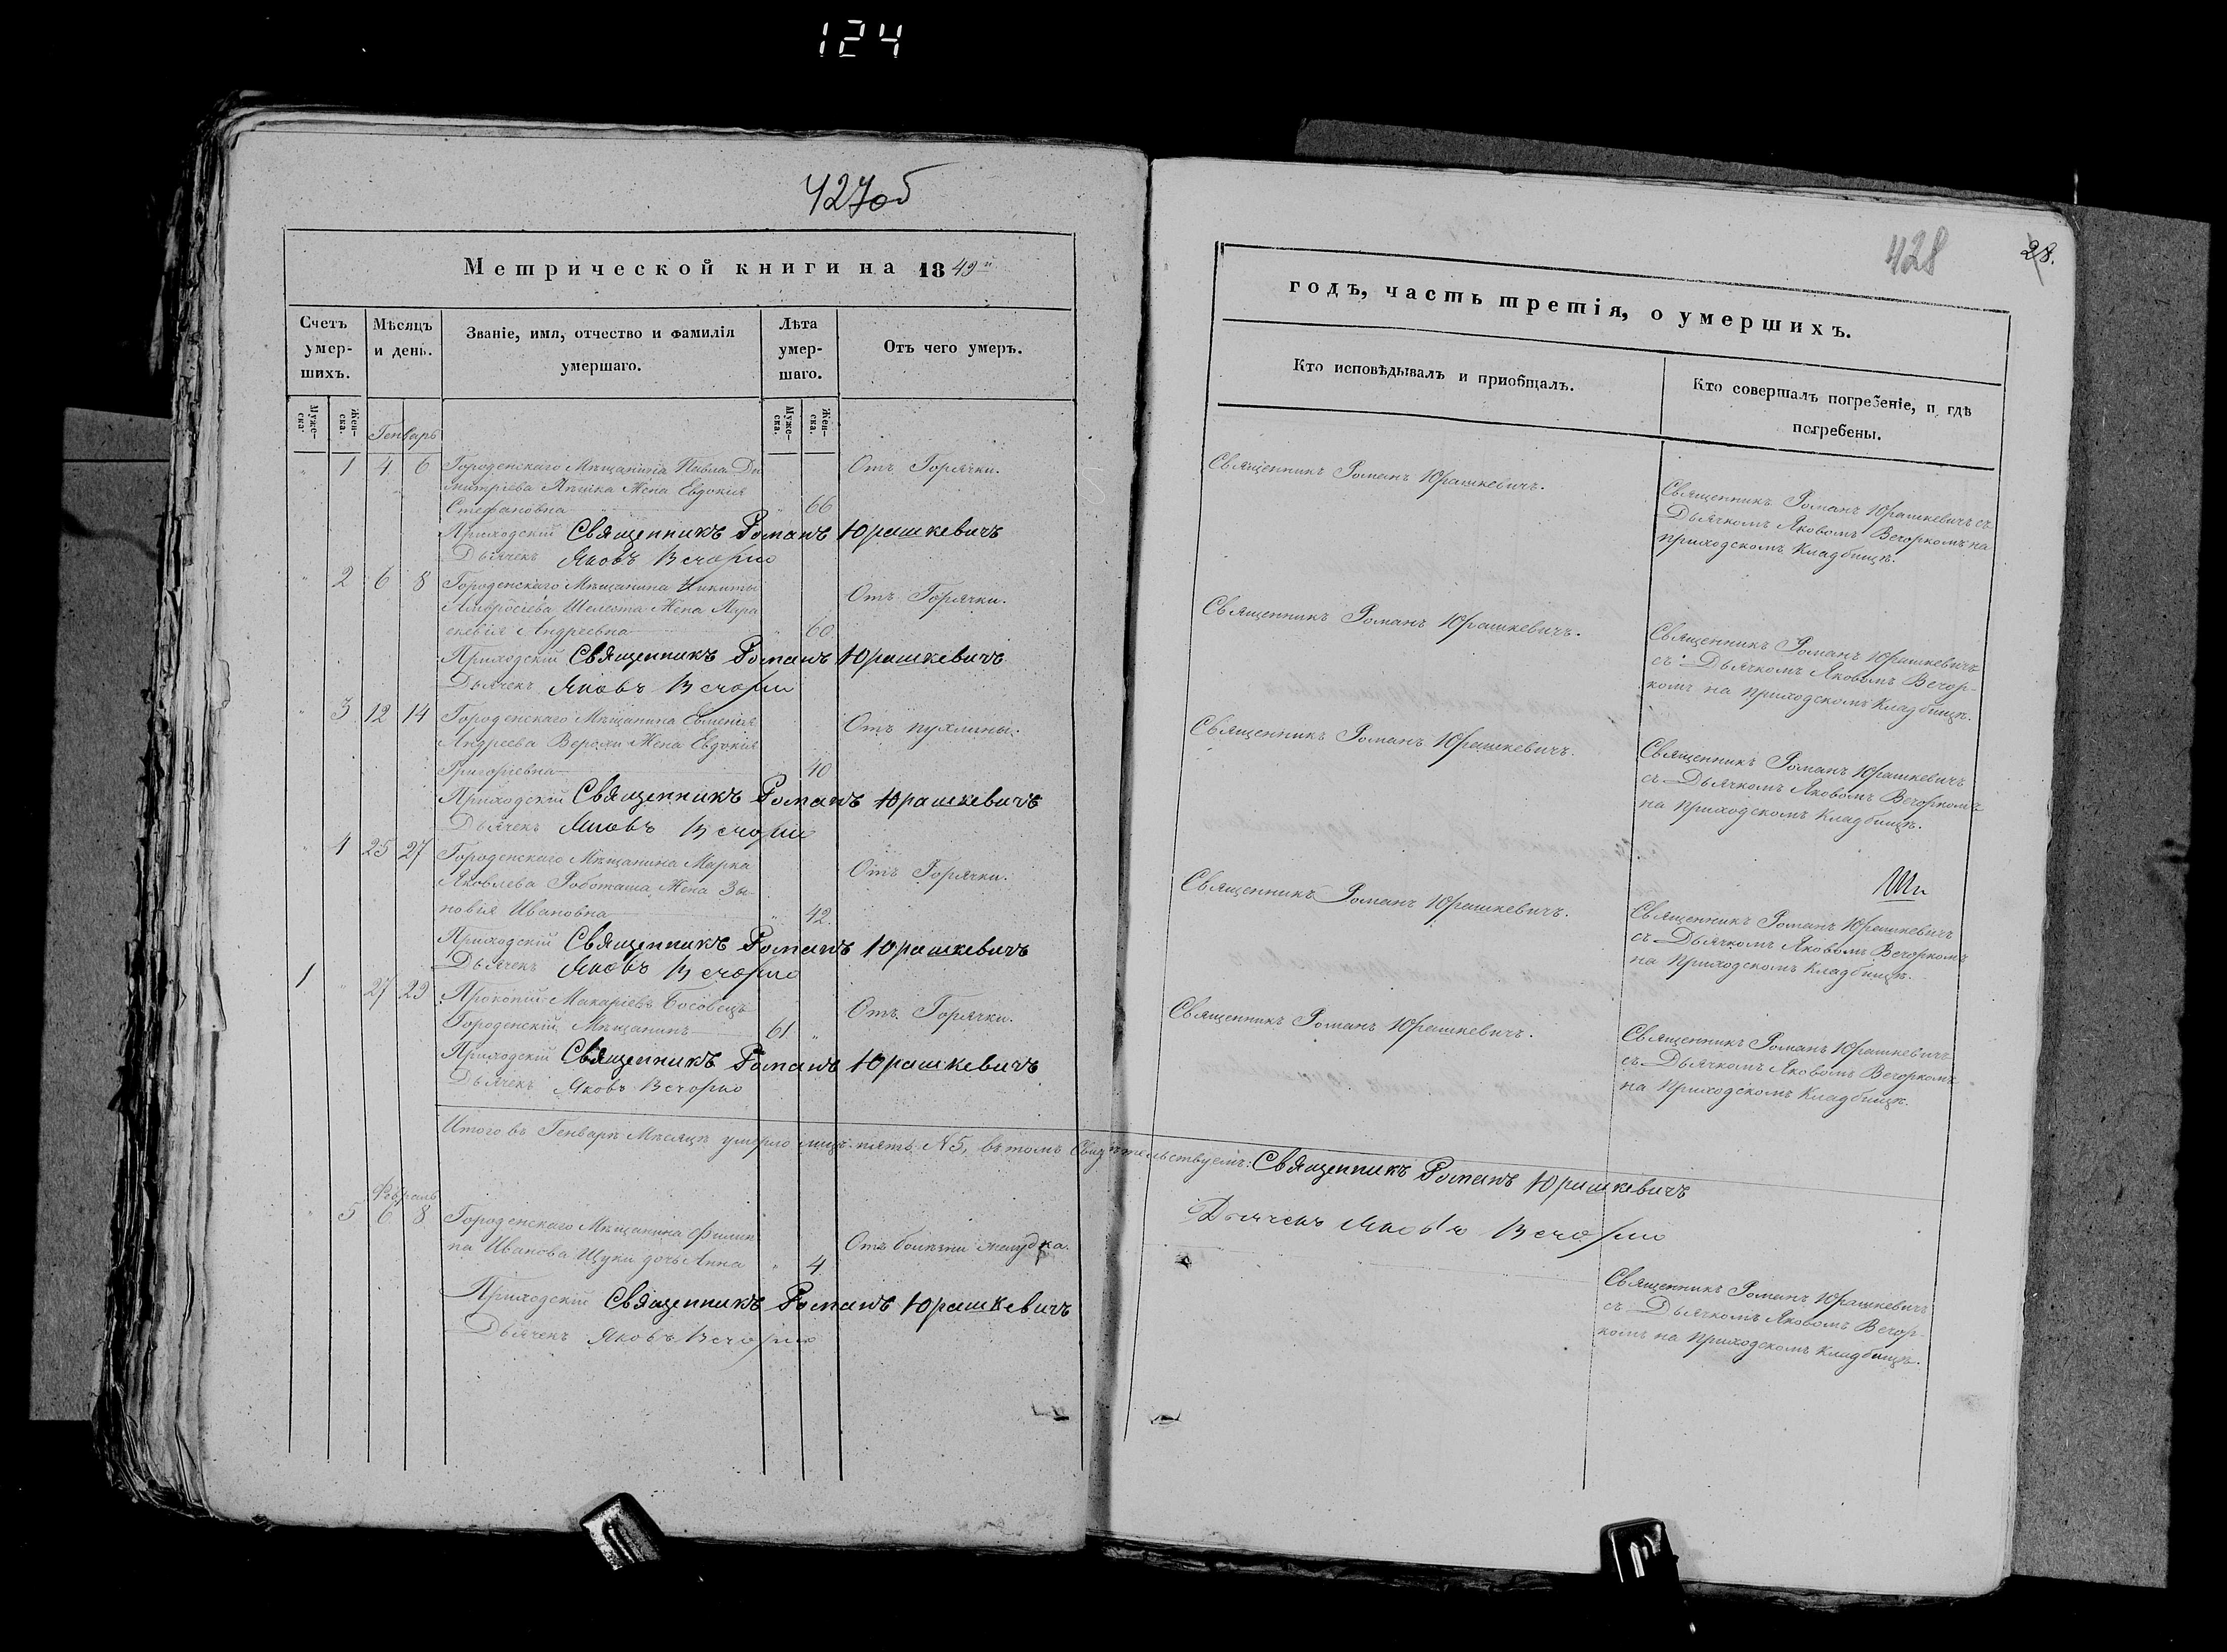 124
427об
Метрической книги на 1849й
Счетъ умер-шихъ.
Мѣсяцъ и день.
Званіе, имя, отчество и фамилія умершаго.
Лѣта умер-шаго.
Отъ чего умеръ.
Муже-ска.
Жен-ска.
Муже-ска.
Жен-ска.
Генварь
1 4 6 Городенскаго Мѣщанина Павла Ди
митріева Жена Евдокія
Стефановна 66
Отъ Горячки.
Приходскій Священникъ Романъ Юрашкевичъ
Дьячекъ Яковъ Вечорко
2 6 8 Городенскаго Мѣщанина Никиты
Амвросіева Шелюта Жена Пара
скевія Андреевна 60
Отъ Горячки.
Приходскій Священникъ Романъ Юрашкевичъ
Дьячекъ Яковъ Вечорко
3 12 14 Городенскаго Мѣщанина
Андреева Жена Евдокія
Григоріевна 40
Отъ пухлины.
Приходскій Священникъ Романъ Юрашкевичъ
Дьячекъ Яковъ Вечорко
4 25 27 Городенскаго Мѣщанина Марка
Яковлева Жена Зи-
новія Ивановна 42
Отъ Горячки.
Приходскій Священникъ Романъ Юрашкевичъ
Дьячекъ Яковъ Вечорко
1 27 29 Прокопій Макаріевъ Босовецъ
Городенскій Мѣщанинъ 61
Отъ Горячки.
Приходскій Священникъ Романъ Юрашкевичъ
Дьячекъ Яковъ Вечорко
Итого въ Генварѣ Мѣсяцѣ умерло лицъ пять N5, въ томъ свидѣтельствуемъ: Священникъ Романъ Юрашкевичъ
Дьячекъ Яковъ Вечорко
Февраль
5 6 8 Городенскаго Мѣщанина Филип
па Иванова Щуки дочь Анна 4
Отъ болѣзни желудка.
Приходскій Священникъ Романъ Юрашкевичъ
Дьячекъ Яковъ Вечорко
428
28.
годъ, часть третія, о умершихъ.
Кто исповѣдывалъ и пріобщалъ.
Кто совершалъ погребеніе, и гдѣ погребены.
Священникъ Романъ Юрашкевичъ.
Священникъ Романъ Юрашкевичъ съ
Дьячкомъ Яковомъ Вечоркомъ на
приходскомъ Кладбищѣ.
Священникъ Романъ Юрашкевичъ.
Священникъ Романъ Юрашкевичъ
съ Дьячкомъ Яковомъ Вечор-
комъ на приходскомъ Кладбищѣ.
Священникъ Романъ Юрашкевичъ.
Священникъ Романъ Юрашкевичъ
съ Дьячкомъ Яковомъ Вечоркомъ
на Приходскомъ Кладбищѣ.
Священникъ Романъ Юрашкевичъ.
Священникъ Романъ Юрашкевичъ
съ Дьячкомъ Яковомъ Вечоркомъ
на Приходскомъ Кладбищѣ.
Священникъ Романъ Юрашкевичъ.
Священникъ Романъ Юрашкевичъ
съ Дьячкомъ Яковомъ Вечоркомъ
на Приходскомъ Кладбищѣ.
Священникъ Романъ Юрашкевичъ
съ Дьячкомъ Яковомъ Вечор-
комъ на Приходскомъ Кладбищѣ.